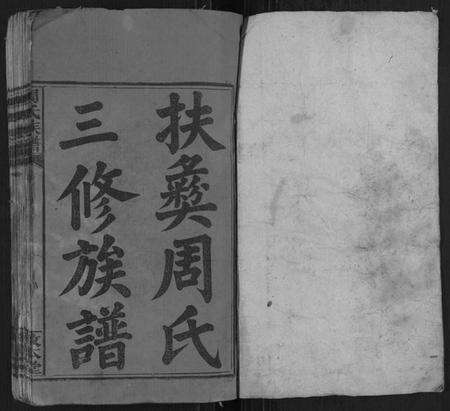 扶彝周氏
三修族譜